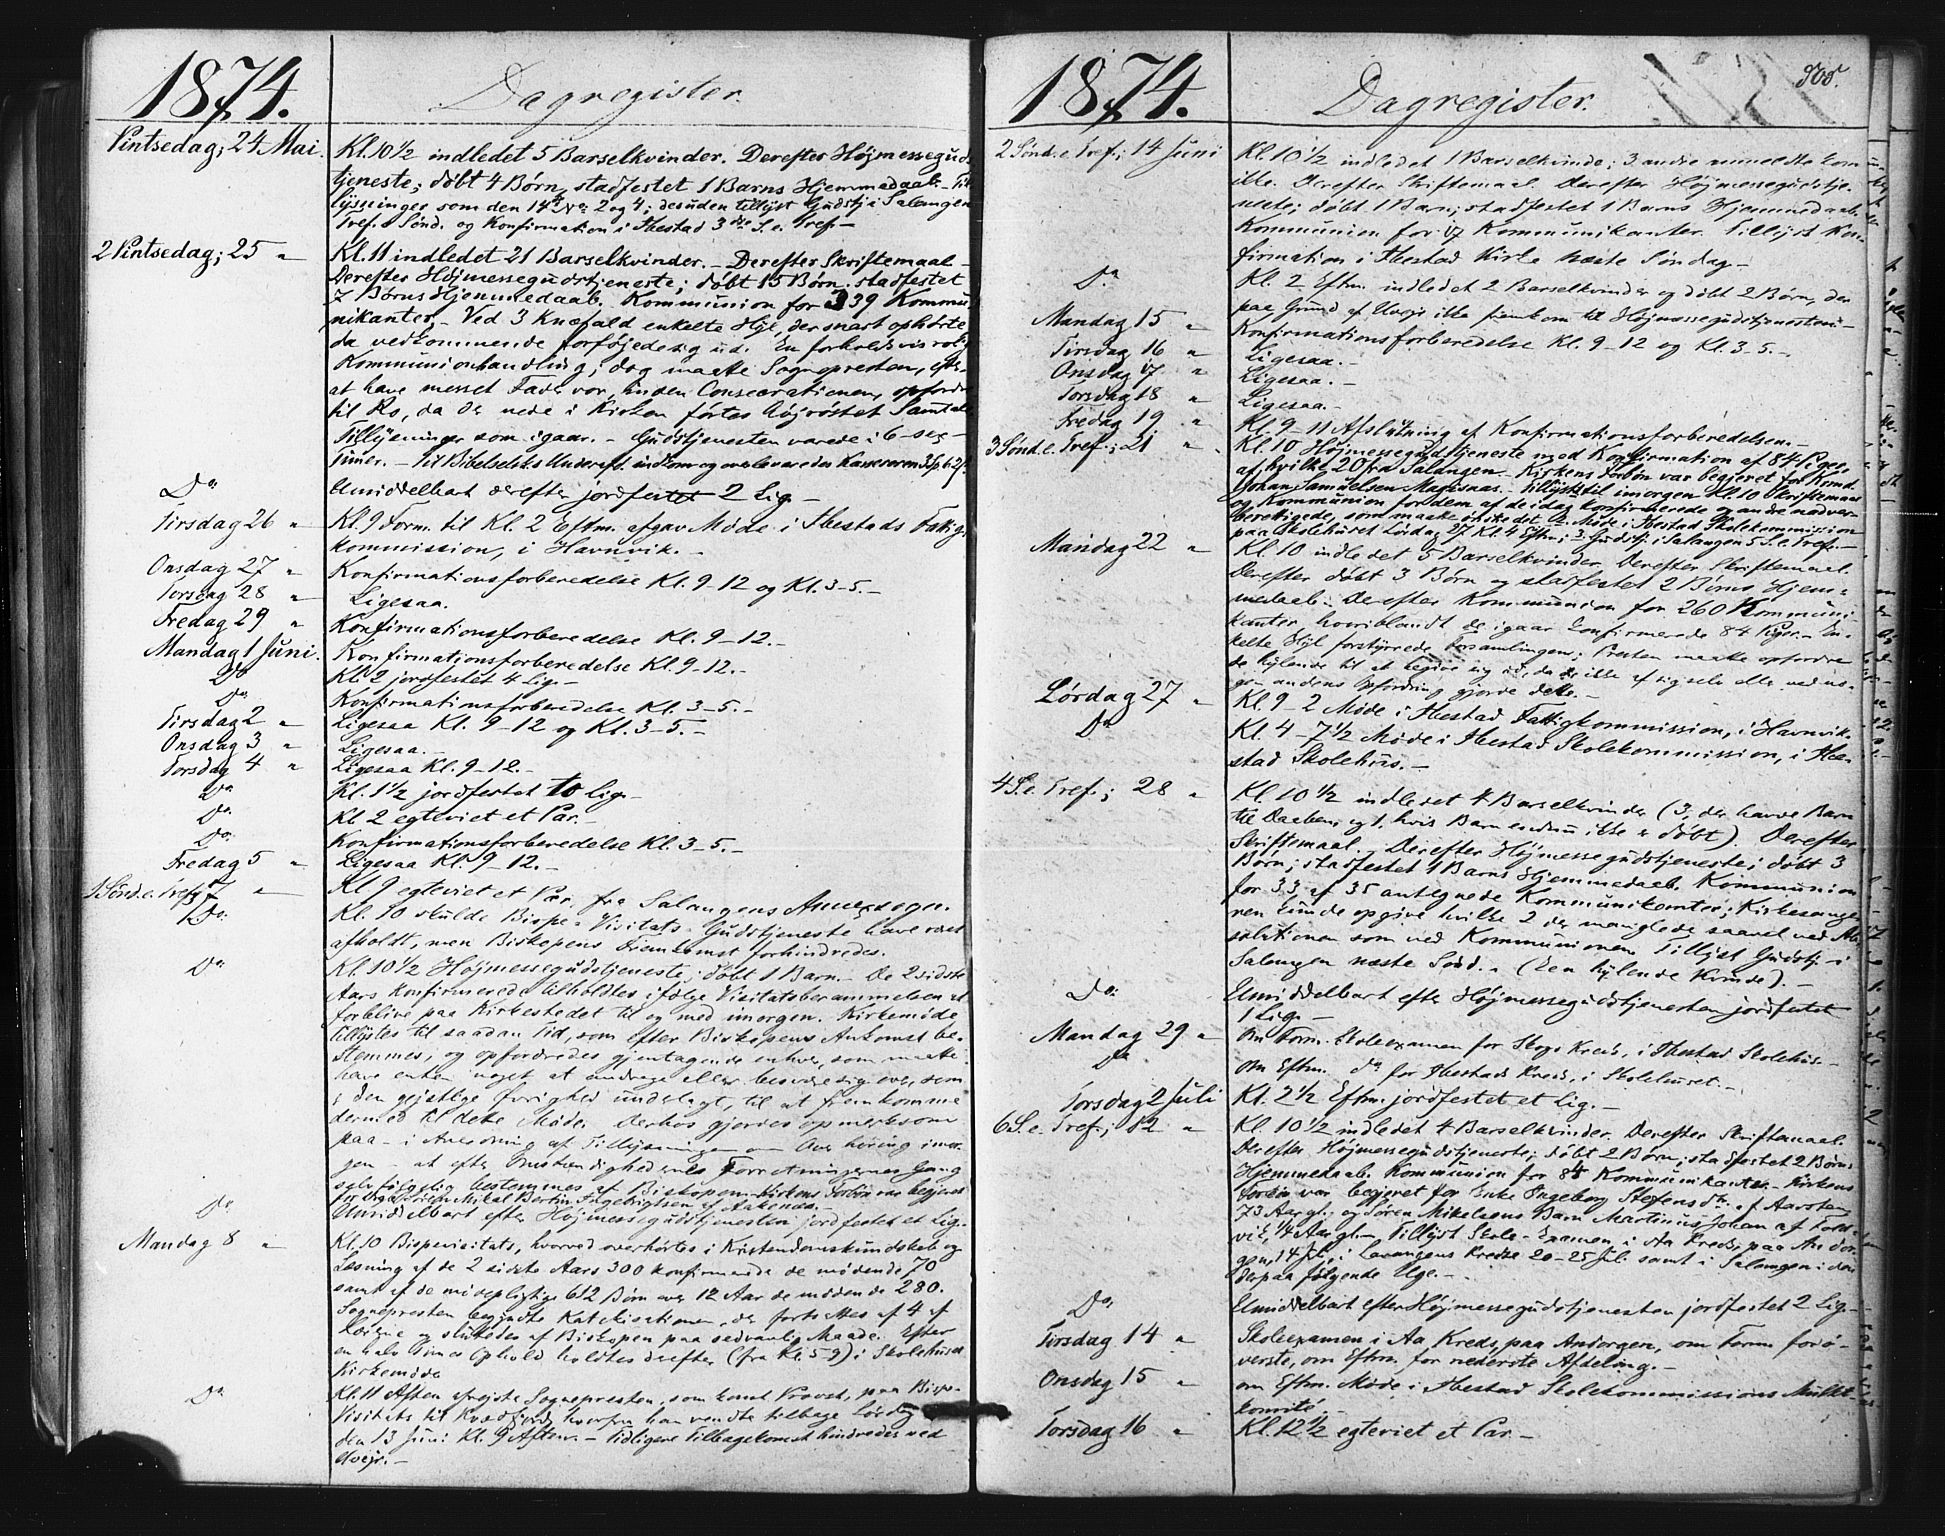 1874.
Dagregister.
Pintsedag; 24 Mai. Kl. 10½ indledet 5 Barselkvinder. Derefter Højmessegud-
tjeneste; døbt 4 Børn, stadfestet 1 Barns Hjemmedaab. - Til-
lysninger som den 14de No 2 og 4; desuden tillyst Gudstj. i Salangen
Tref. Sønd. og Konfirmation i Ibestad 3die S. e. Tref. -
2 Pintsedag; 25 " Kl. 11 indledet 21 Barselkvinder. - Derefter Skriftemaal -
Derefter Højmessegudstjeneste; døbt 15 Børn. stadfestet
7 Børns Hjemmedaab. Kommunion for 339 Kommu-
nikanter. - Ved 3 Knefald enkelte Hyl, der snart ophørte,
da vedkommende forføjede sig ud. En forholdsvis rolig
Kommunionhandling; dog maatte Sognepresten, efter
at have messet Fader vor, inden Consecrationen, opfordre
til Ro, da der nede i Kirken førtes højrøstet Samtale
Tillysninger som igaar. - Gudstjenesten varede i 6 - sex -
Timer. - Til Bibelselsk. Underafd. indkom og overleveredes Kassereren 3 Sp. 62 f.
Do Umiddelbart derefter jordfestet 2 Lig. -
Tirsdag 26 " Kl. 9 Form. til Kl. 2 Eftm. afgav Møde i Ibestads Fattig-
kommission, i Havnvik. -
Onsdag 27 " Konfirmationsforberedelse Kl. 9-12 og Kl. 3-5. -
Torsdag 28 " Ligesaa.
Fredag 29 " Konfirmationsforberedelse Kl. 9-12. -
Mandag 1 Juni. Konfirmationsforberedelse Kl. 9-12. -
Do Kl. 2 jordfestet 4 Lig. -
Do Konfirmationsforberedelse Kl. 3-5. -
Tirsdag 2 " Ligesaa Kl. 9-12 og Kl. 3-5. -
Onsdag 3 " Ligesaa. -
Torsdag 4 " Ligesaa Kl. 9-12. -
Do Kl. 1½ jordfestet to Lig. -
Do Kl. 2 egteviet et Par. -
Do Konfirmationsforberedelse Kl. 3-5. -
Fredag 5 " Ligesaa Kl. 9-12. -
1 Sønd. e. Tref. 7 " Kl. 9 egteviet et Par, fra Salangens Annexsogn.
Do Kl. 10 skulde Bispe-Visitats-Gudstjeneste have vært
afholdt, men Biskopens Fremkomst forhindredes.
Do Kl. 10½ Højmessegudstjeneste; døbt 1 Barn. - De 2 sidste
Aars Konfirmerede tilholdtes ifølge Visitatsberammelsen at
forblive paa Kirkestedet til og med imorgen. Kirkemøde
tillystes til saadan Tid, som efter Biskopens Ankomst be-
stemmes; og opfordredes gjentagende enhver, som maatte
have enten noget at andrage eller besvære sig over, som
den gejstlige Øvrighed underlagt, til at fremkomme
dermed til dette Møde. Derhos gjordes opmerksom
paa - i Anledning af Tillysningen om Overhøring imor-
gen - at efter Omstændighederne Forretningernes Gang
selvfølgelig bestemmes af Biskopen. - Kirkens Forbøn var begjeret
for Mikal Bertin Ingebrigtsen af Aakenes. -
Do Umiddelbart efter Højmessegudstjenesten jordfestet et Lig. -
Mandag 8 " Kl. 10 Bispevisitats, hvorved overhørtes i Kristendomskundskab og
Læsning af de 2 sidste Aars 300 konfirmerede de mødende 70
samt af de mødepligtige 612 Børn over 12 Aar de mødende 280.
Sognepresten begyndte Katekisationen, der fortsattes af 4 af
Lærerne og sluttedes af Biskopen paa sedvanlig Maade. Efter
en halv Times Ophold holdtes derefter (fra Kl. 5-9) i Skolehuset
Kirkemøde
Do Kl. 11 Aften afrejste Sognepresten, som konst. Provst, paa Bispe-
Visitats til Kvædfjord, hvorfra han vendte tilbage Lørdag
den 13 Juni Kl. 9 Aften. - Tidligere Tilbagekomst hindredes ved
Uvejr. -
1874.
Dagregister.
505.
2 Sønd. e. Tref.; 14 Juni Kl. 10½ indledet 1 Barselkvinde; 3 andre anmeldte kom
ikke. Derefter Skriftemaal. Derefter Højmessegudstje-
neste; døbt 1 Barn; stadfestet 1 Barns Hjemmedaab.
Kommunion for 17 Kommunikanter. Tillyst Kon-
firmation i Ibestad Kirke næste Søndag. -
Do Kl. 2 Eftm. indledet 2 Barselkvinder og døbt 2 Børn, der
paa Grund af Uvejr ikke fremkom til Højmessegudstjenesten. -
Mandag 15 " Konfirmationsforberedelse Kl. 9-12 og Kl. 3-5. -
Tirsdag 16 " Ligesaa. -
Onsdag 17 " Ligesaa. -
Torsdag 18 " Ligesaa. -
Fredag 19 " Kl. 9-11 Afslutning af Konfirmationsforberedelsen. -
3 Sønd. e. Tref.; 21 " Kl. 10 Højmessegudstjeneste med Konfirmation af 84 Piger,
af hvilke 20 fra Salangen. Kirkens Forbøn var begjeret for Konfirmd.
Johan Samuelsen Magisnas. - Tillystes til imorgen Kl. 10 Skriftemaal
og Kommunion for dem af de idag konfirmerede og andre nadver-
berettigede, som maatte ønske det. 2. Møde i Ibestad Skolekommission
paa Skolehuset Lørdag 27 Kl. 4 Eftm.; 3. Gudstj. i Salangen 5 S. e. Tref. -
Mandag 22 " Kl. 10 indledet 5 Barselkvinder. Derefter Skriftemaal.
Derefter døbt 3 Børn og stadfestet 2 Børns Hjem-
medaab. Derefter Kommunion for 260 Kommuni-
kanter, hvoriblandt de igaar konfirmerede 84 Piger. - En-
kelte Hyl forstyrrede Forsamlingen; Presten maatte opfordre
de hylende til at begive sig ud, da de ikke af sig selv eller ved no-
gen andens Opfordring gjorde dette. -
Lørdag 27 " Kl. 9-2 Møde i Ibestad Fattigkommission, i Havnvik.
Do Kl. 4-7½ Møde i Ibestad Skolekommission, i Ibe-
stad Skolehus. -
4 S. e. Tref.; 28 " Kl. 10½ indledet 4 Barselkvinder (3, der havde Barn
til Daaben, og 1, hvis Barn endnu ikke er døbt). Derefter
Skriftemaal. Derefter Højmessegudstjeneste; døbt 3
Børn; stadfestet 1 Barns Hjemmedaab. Kommunion
for 33 af 35 antegnede Kommunikanter; Kirkesange-
ren kunde opgive hvilke 2 der manglede saavel ved Ab-
solutionen som ved Kommunionen. Tillyst Gudstj. i
Salangen næste Sønd. - (Een hylende Kvinde). -
Do Umiddelbart efter Højmessegudstjenesten jordfestet
1 Lig. -
Mandag 29 " Om Form. Skoleexamen for Skogs Kreds, i Ibestad Skolehus. -
Do Om Eftm. do for Ibestads Kreds, i Skolehuset. -
Torsdag 2 Juli Kl. 2½ Eftm. jordfestet et Lig. -
6 S. e. Tref.; 12 " Kl. 10½ indledet 4 Barselkvinder. Derefter Skriftemaal.
Derefter Højmessegudstjeneste; døbt 2 Børn; stadfestet 2 Børns
Hjemmedaab. Kommunion for 84 Kommunikanter. Kirkens
Forbøn var begjeret for Enke Ingeborg Steffensdtr. af Aarsten,
73 Aar gl., og Søren Mikelsens Barn Martinus Johan af Fold-
vik, ¼ Aar gl. - Tillyst Skole-Examen i Aa Kreds, paa Andor-
gen, 14 Juli, i Lavangens Kredse 20-25 Juli samt i Salangen i den
derpaa følgende Uge. -
Do Umiddelbart efter Højmessegudstjenesten jordfestet 2 Lig. -
Tirsdag 14 " Skoleexamen i Aa Kreds, paa Andorgen, om Form. for ø-
verste, om Eftm. for nederste Afdeling. -
Onsdag 15 " om Eftm. Møde i Ibestad Skolekommissions Mulkt-
komité. -
Torsdag 16 " Kl. 12½ egteviet et Par. -